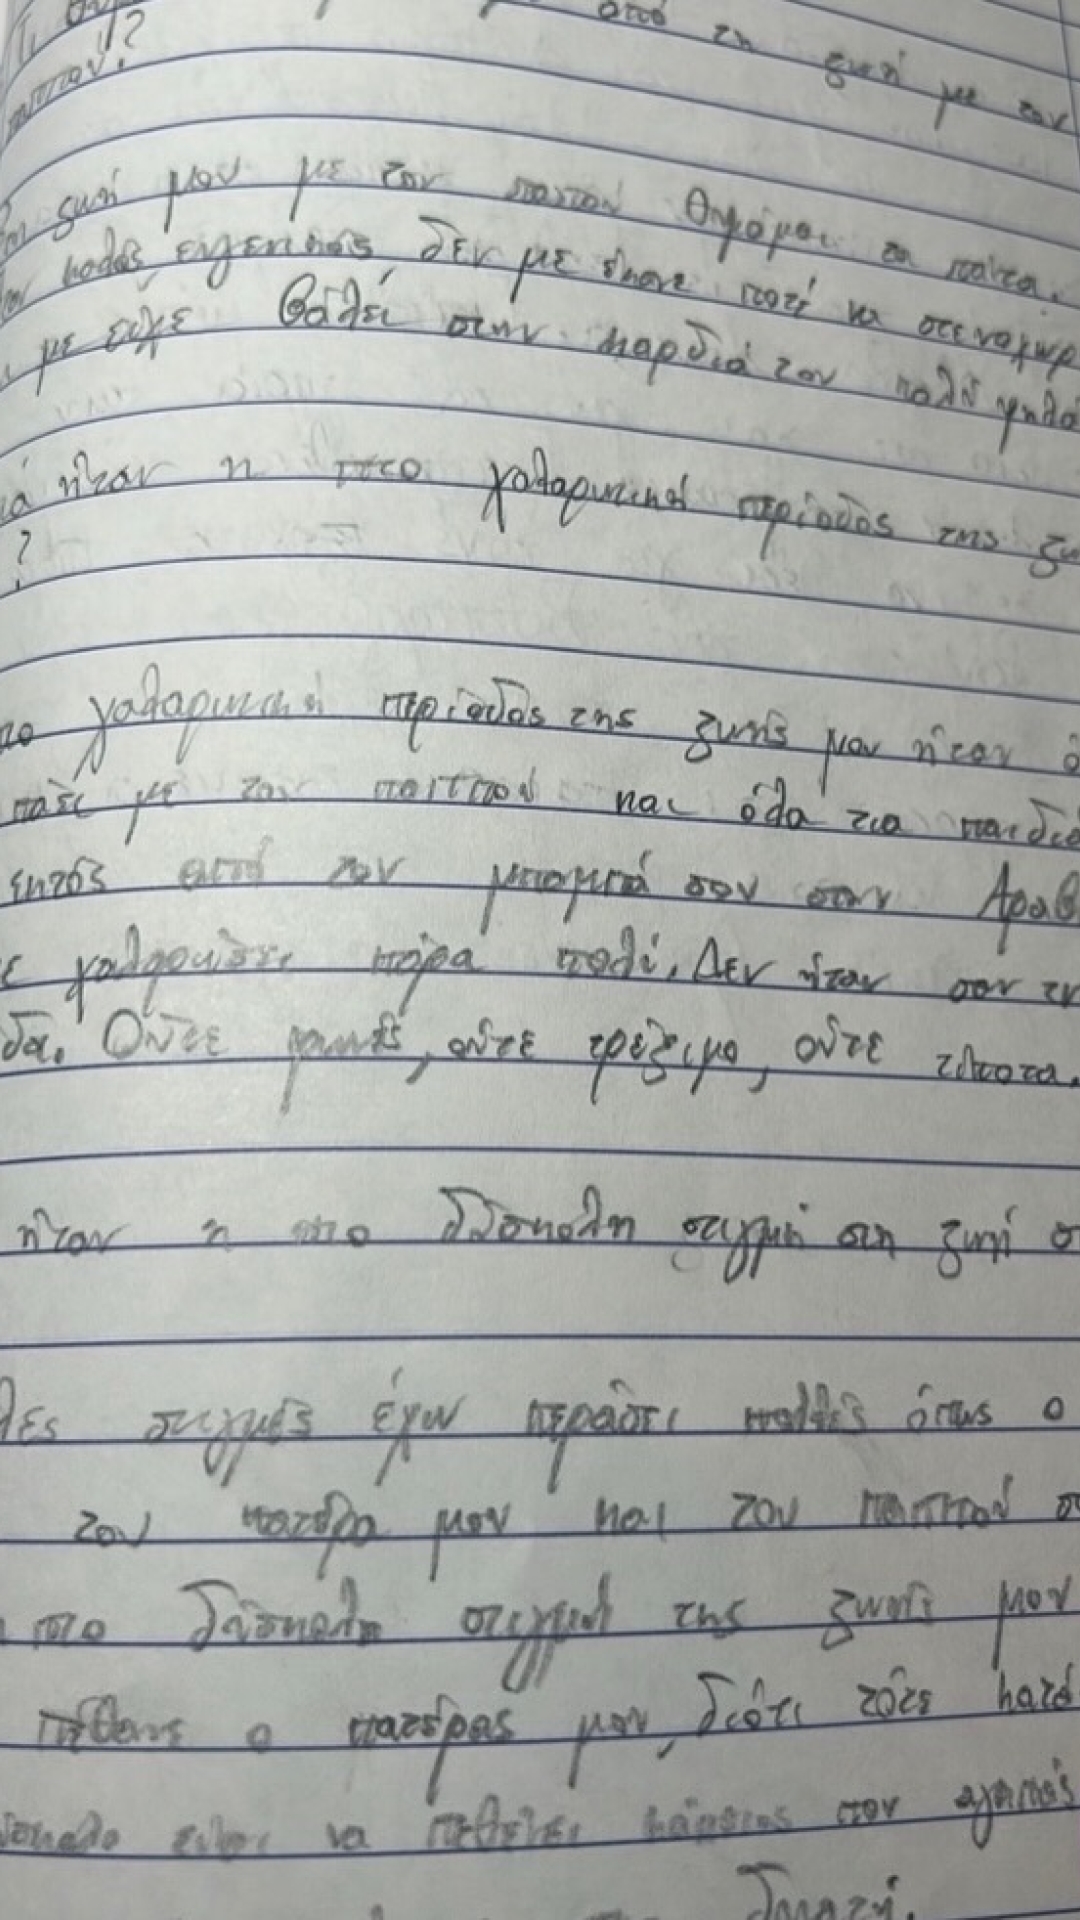 από τη ζωή με τον
παππού?
ζωή μου με τον παππού θυμάμαι τα πάντα.
καλός ευγενικός δεν με έκανε ποτέ να στεναχωρ
με είχε βάλει στην καρδιά του πολύ ψηλά
ήταν η πιο χαλαρωτική περίοδος της ζω
?
πιο χαλαρωτική περίοδος της ζωής μου ήταν ό
πάει με τον παππού και όλα τα παιδιά
εκτός από τον μπαμπά σου στην Αραβ
χαλαρώσει πάρα πολύ. Δεν ήταν σαν τη
δα. Ούτε φωνές, ούτε τρέξιμο, ούτε τίποτα.
ήταν η πιο δύσκολη στιγμή στη ζωή σ
λες στιγμές έχω περάσει πολλές όπως ο
του πατέρα μου και του παππού σ
πιο δύσκολη στιγμή της ζωής μου
πέθανε ο πατέρας μου, διότι τότε κατά
να πεθάνει κάποιος που αγαπάς